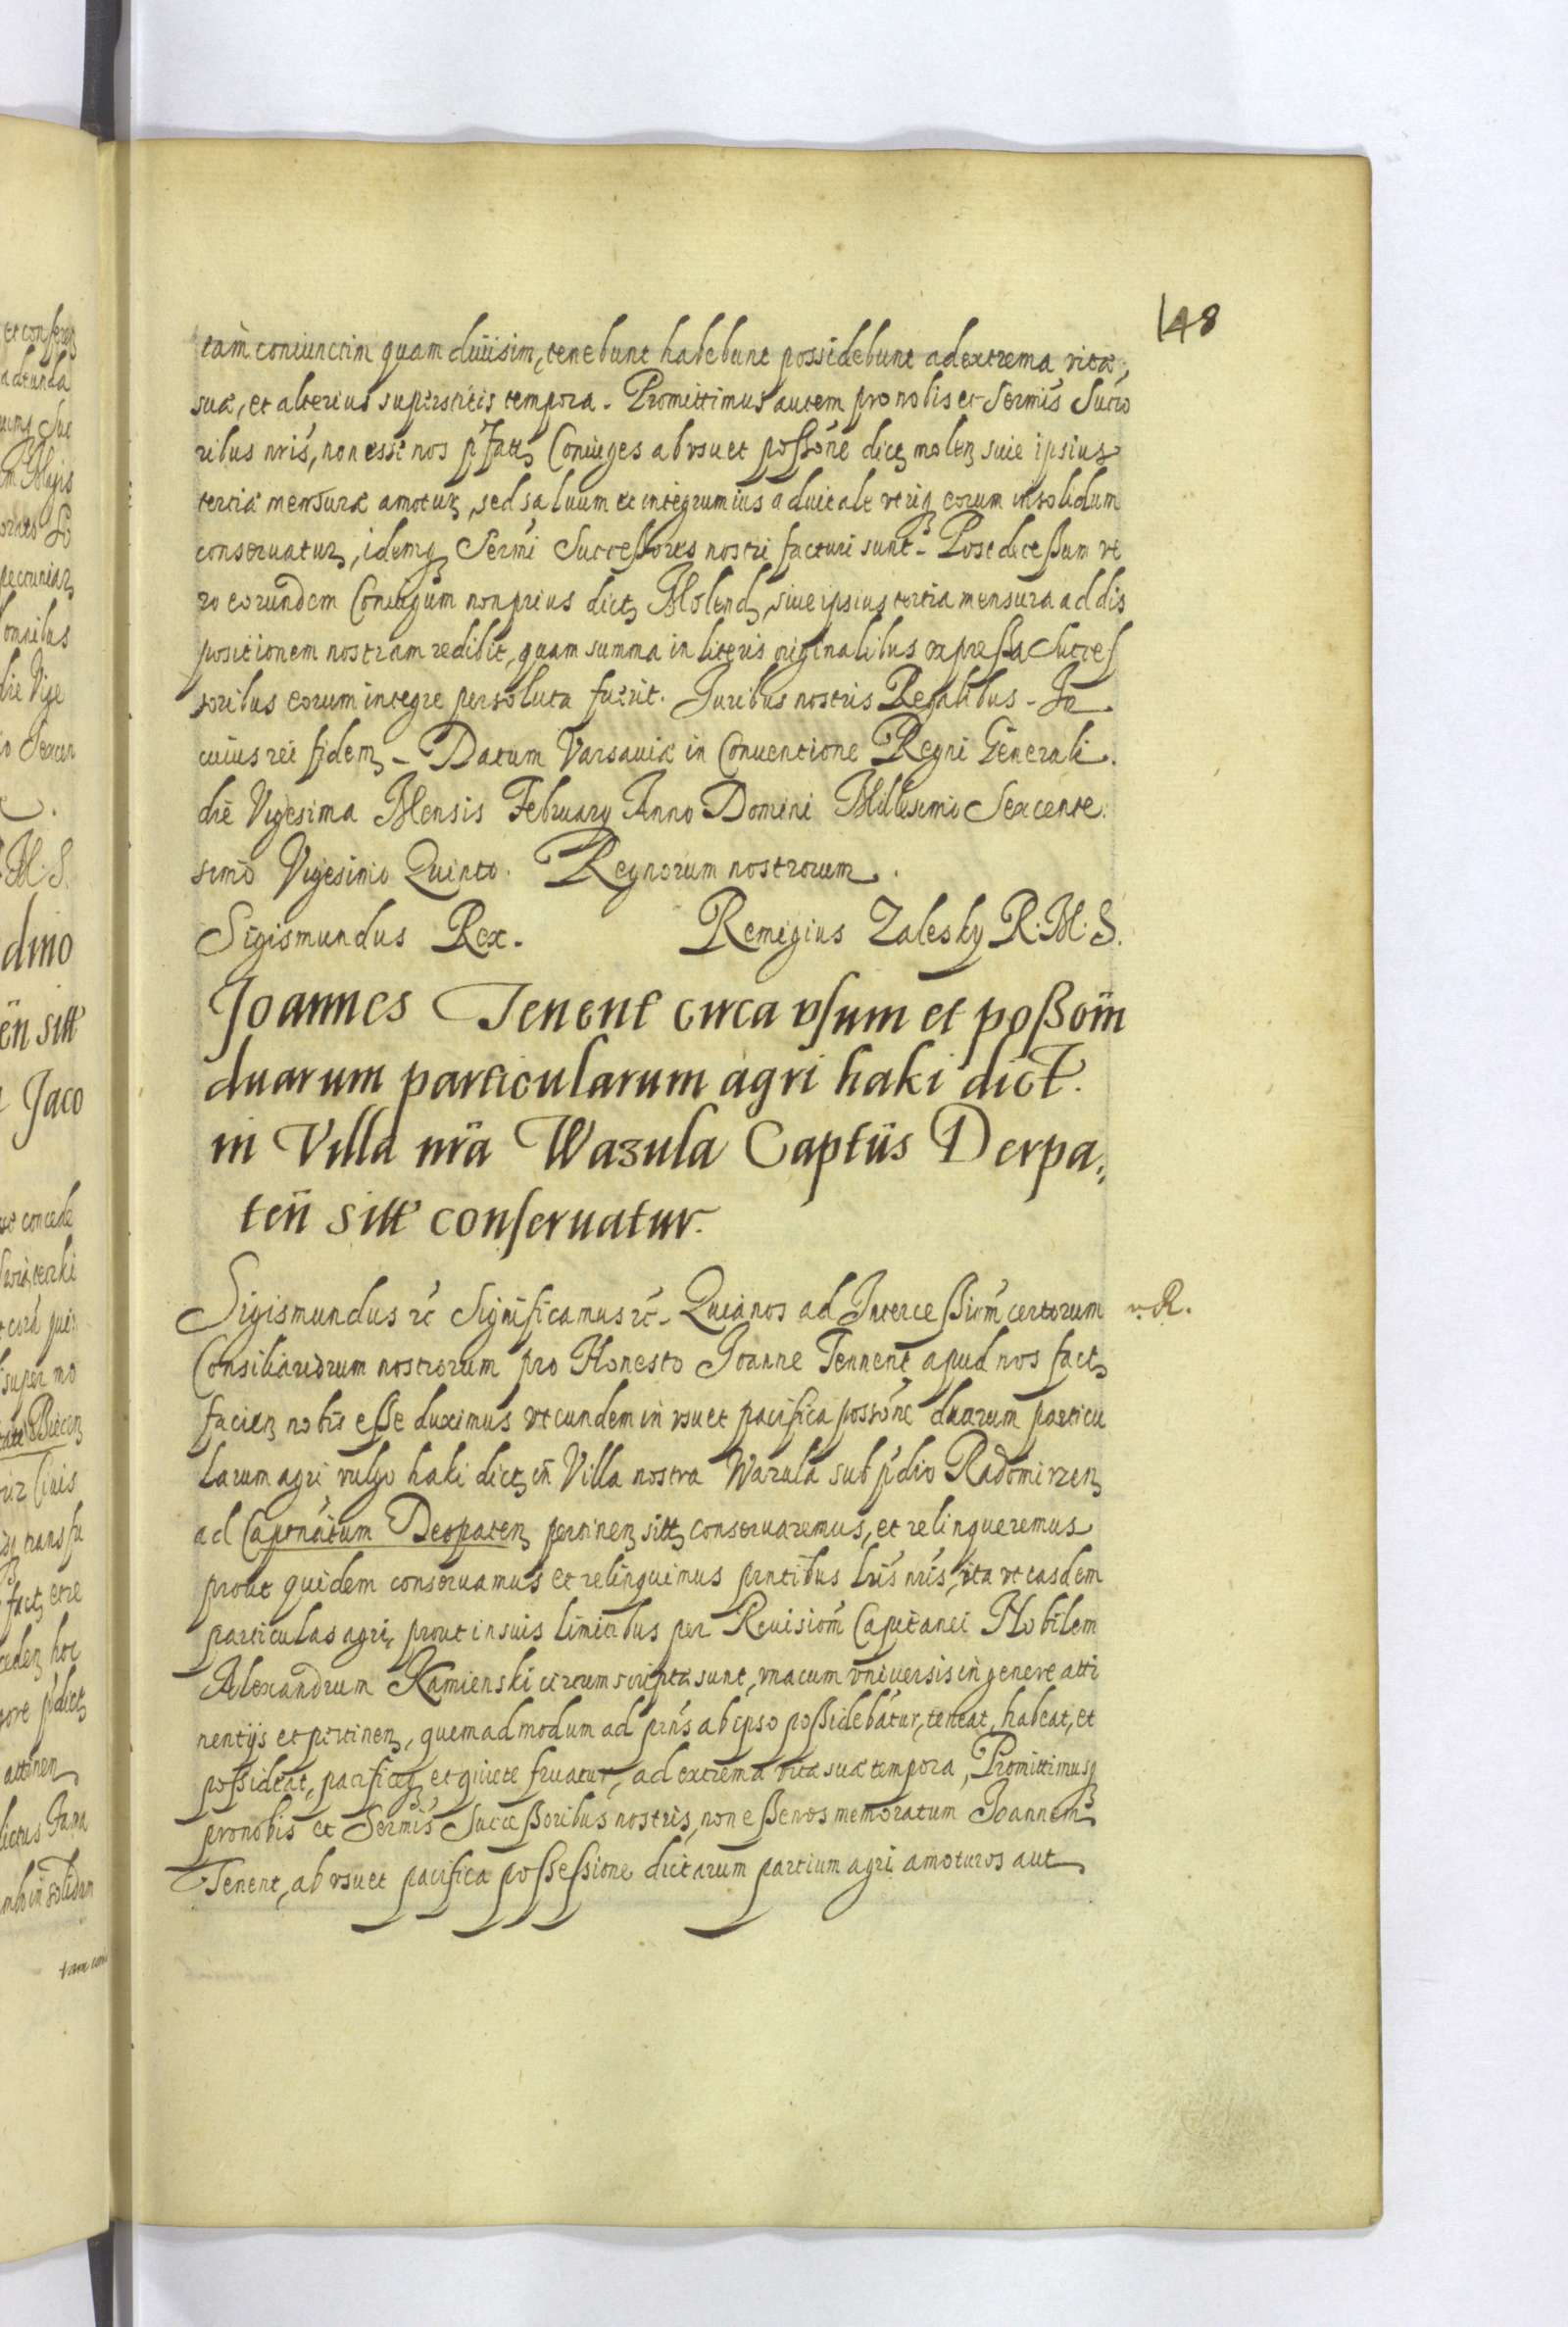 148
tam coniunctim quam diuisim, tenebunt habebunt possidebunt ad extrema vitæ
suæ, et alterius superstitis tempora. Promittimus autem pro nobis et Sermis Succo
ribus nris, non esse nos pfat Coniuges ab vsu et possone dict molen siue ipsius
tertiæ mensuræ amotur, sed saluum et integrum ius aduitale vtriq eorum in solidum
conseruatur, idemq Sermi Successores nostri facturi sunt. Post decessum ve
ro eorundem Coniugum non prius dict Molend, siue ipsius tertia mensura ad dis
positionem nostram redibit, quam summa in literis originalibus expressa Succes
soribus eorum integre persoluta fuerit. Juribus nostris Regalibus. In
cuius rei fidem. Datum Varsauiæ in Conuentione Regni Generali.
die Vigesima Mensis February Anno Domini Millesimo Sexcente.
simo Vigesimo Quinto. Regnorum nostrorum.
Sigismundus Rex. Remigius Zalesky R. M. S.
Joannes Tenent circa vsum et poßoim
duarum particularum agri haki dict.
in Villa nra Wazula Captus Derpa,
ten sitt conseruatur.
Sigismundus rc Significamus rc. Quia nos ad Intercessiom certorum
R.
Consiliariorum nostrorum pro Honesto Joanne Tennent apud nos fact
facien nobis esse duximus vt eundem in vsu et pacifica possone duarum particu
larum agri vulgo haki dict in Villa nostra Wazula sub pdio Radomirzen
ad Captnatum Derpaten pertinen sitt conseruaremus, et relinqueremus
prout quidem conseruamus et relinquimus pntibus lris nris, ita vt easdem
particulas agri, prout in suis limitibus per Reuisiom Capitanei Nobilem
Alexandrum Kamienski circumscriptæ sunt, vna cum vniuersis in genere atti
nentijs et pertinen, quemadmodum ad pns ab ipso possidebatur, teneat, habeat, et
possideat, pacificeq et quiete fruatur, ad extrema vitæ suæ tempora, Promittimusq
pro nobis et Sermis Successoribus nostris, non esse nos memoratum Joannem
Tenent, ab vsu et pacifica possessione dictarum partium agri amoturos aut